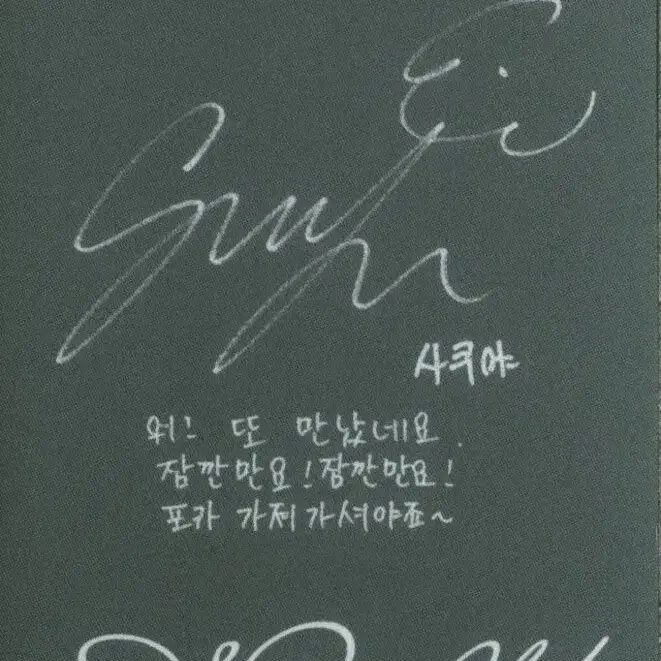 사쿠야
와! 또 만났네요.
잠깐만요! 잠깐만요!
포카 가져가셔야죠~